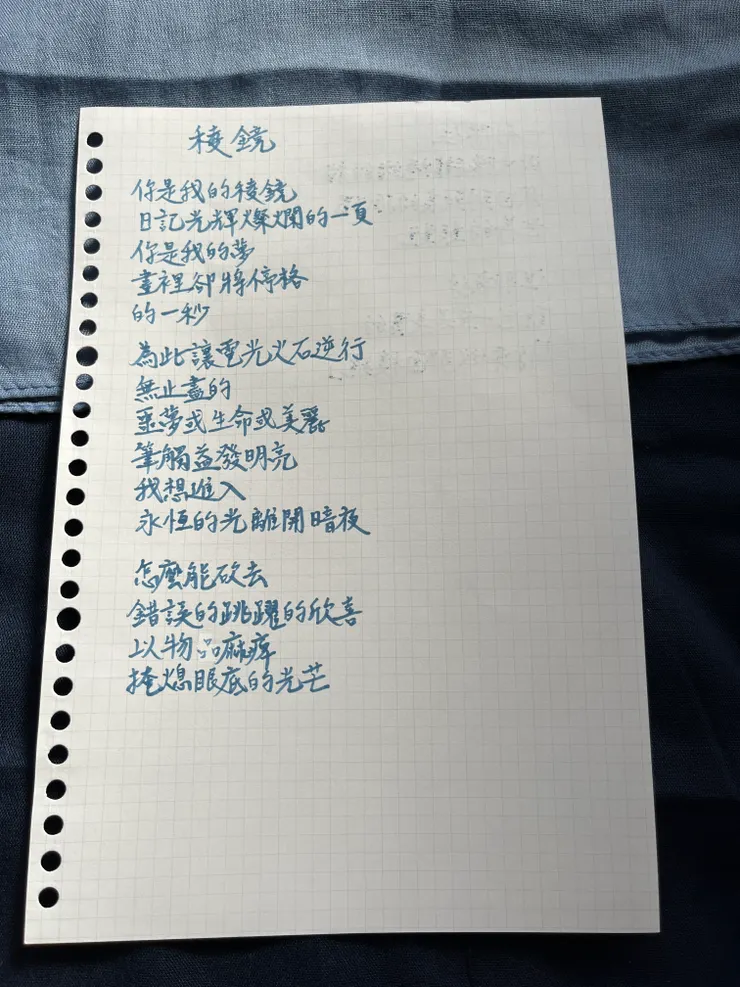 稜鏡
你是我的稜鏡
日記光輝燦爛的一頁
你是我的夢
畫裡卻將停格
的一秒
為此讓電光火石逆行
無止盡的
噩夢或生命或美麗
筆觸益發明亮
我想進入
永恆的光離開暗夜
怎麼能砍去
錯誤的跳躍的欣喜
以物品麻痺
掩熄眼底的光芒